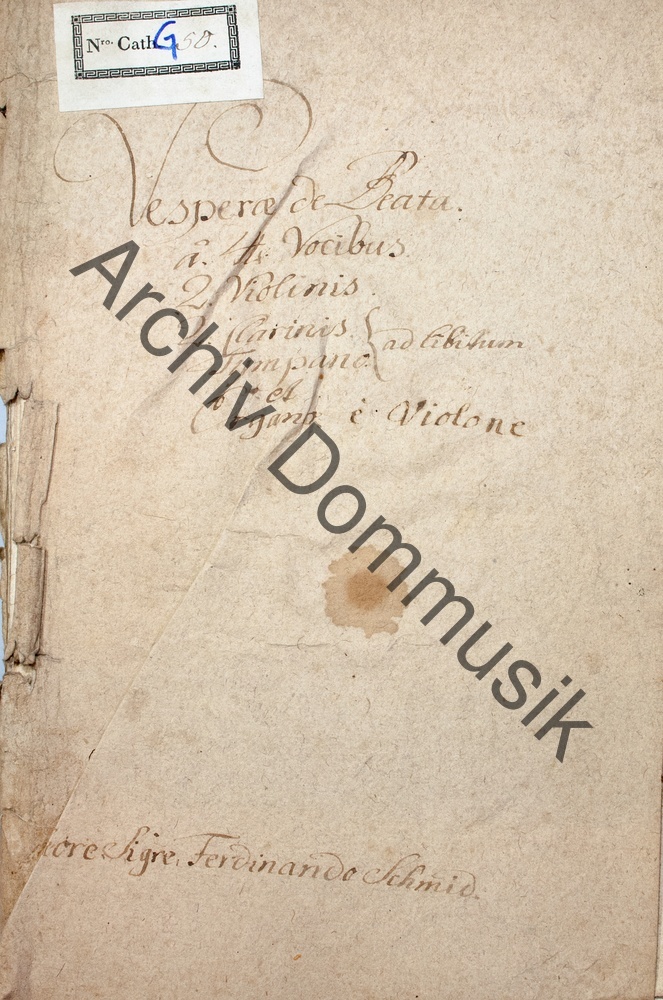 Nro. Cath. G 50.
Vesperæ de Beata.
â. 4. Vocibus
2. Violinis.
2. Clarinis. } ad libitum
Tÿmpano.
et
Organo è Violone
Archiv Dommusik
Sigre. Ferdinando Schmid.